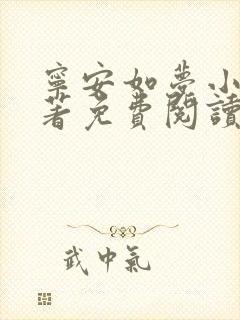 寧安如夢小
著免費閱讀
武中氣